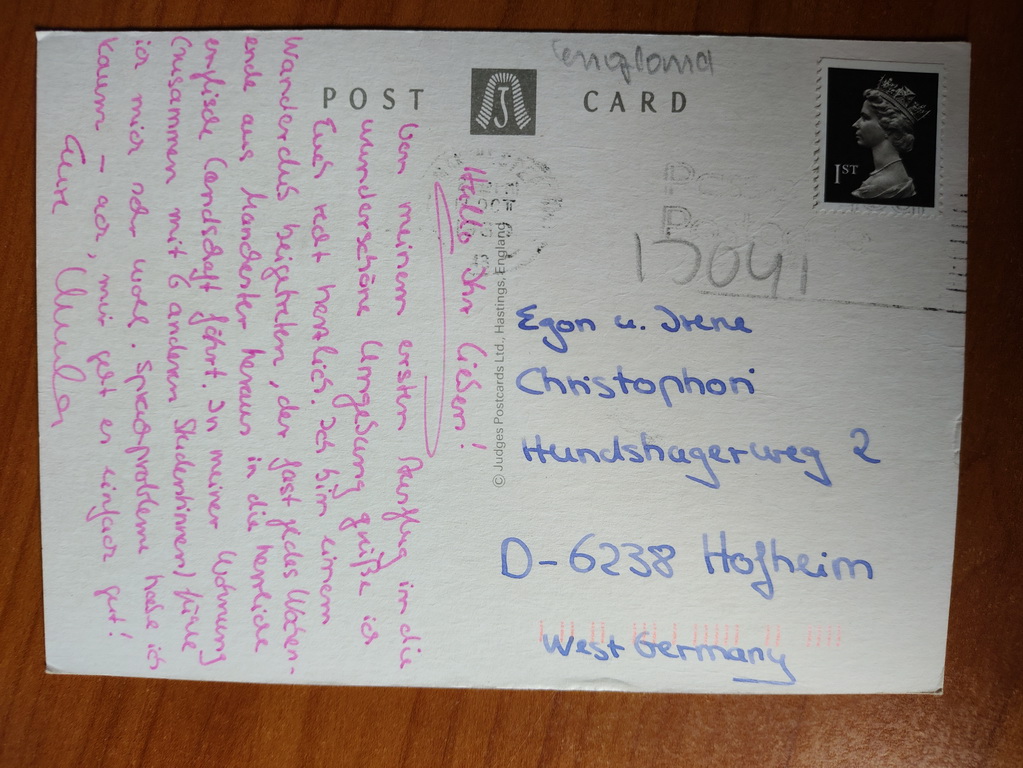 England
POST CARD
1ST
OCT
15041
© Judges Postcards Ltd., Hastings, England
Hallo Ihr Lieben!
Von meinem ersten Ausflug in die
wunderschöne Umgebung grüße ich
Euch recht herzlich. Ich bin einem
Wanderclub beigetreten, der fast jedes Wochen-
ende aus Manchester heraus in die herrliche
englische Landschaft fährt. In meiner Wohnung
(zusammen mit 6 anderen Studentinnen) fühle
ich mich sehr wohl. Sprachprobleme habe ich
kaum – ach, mir geht es einfach gut!
Eure
Egon u. Irene
Christophori
Hundshagerweg 2
D-6238 Hofheim
West Germany